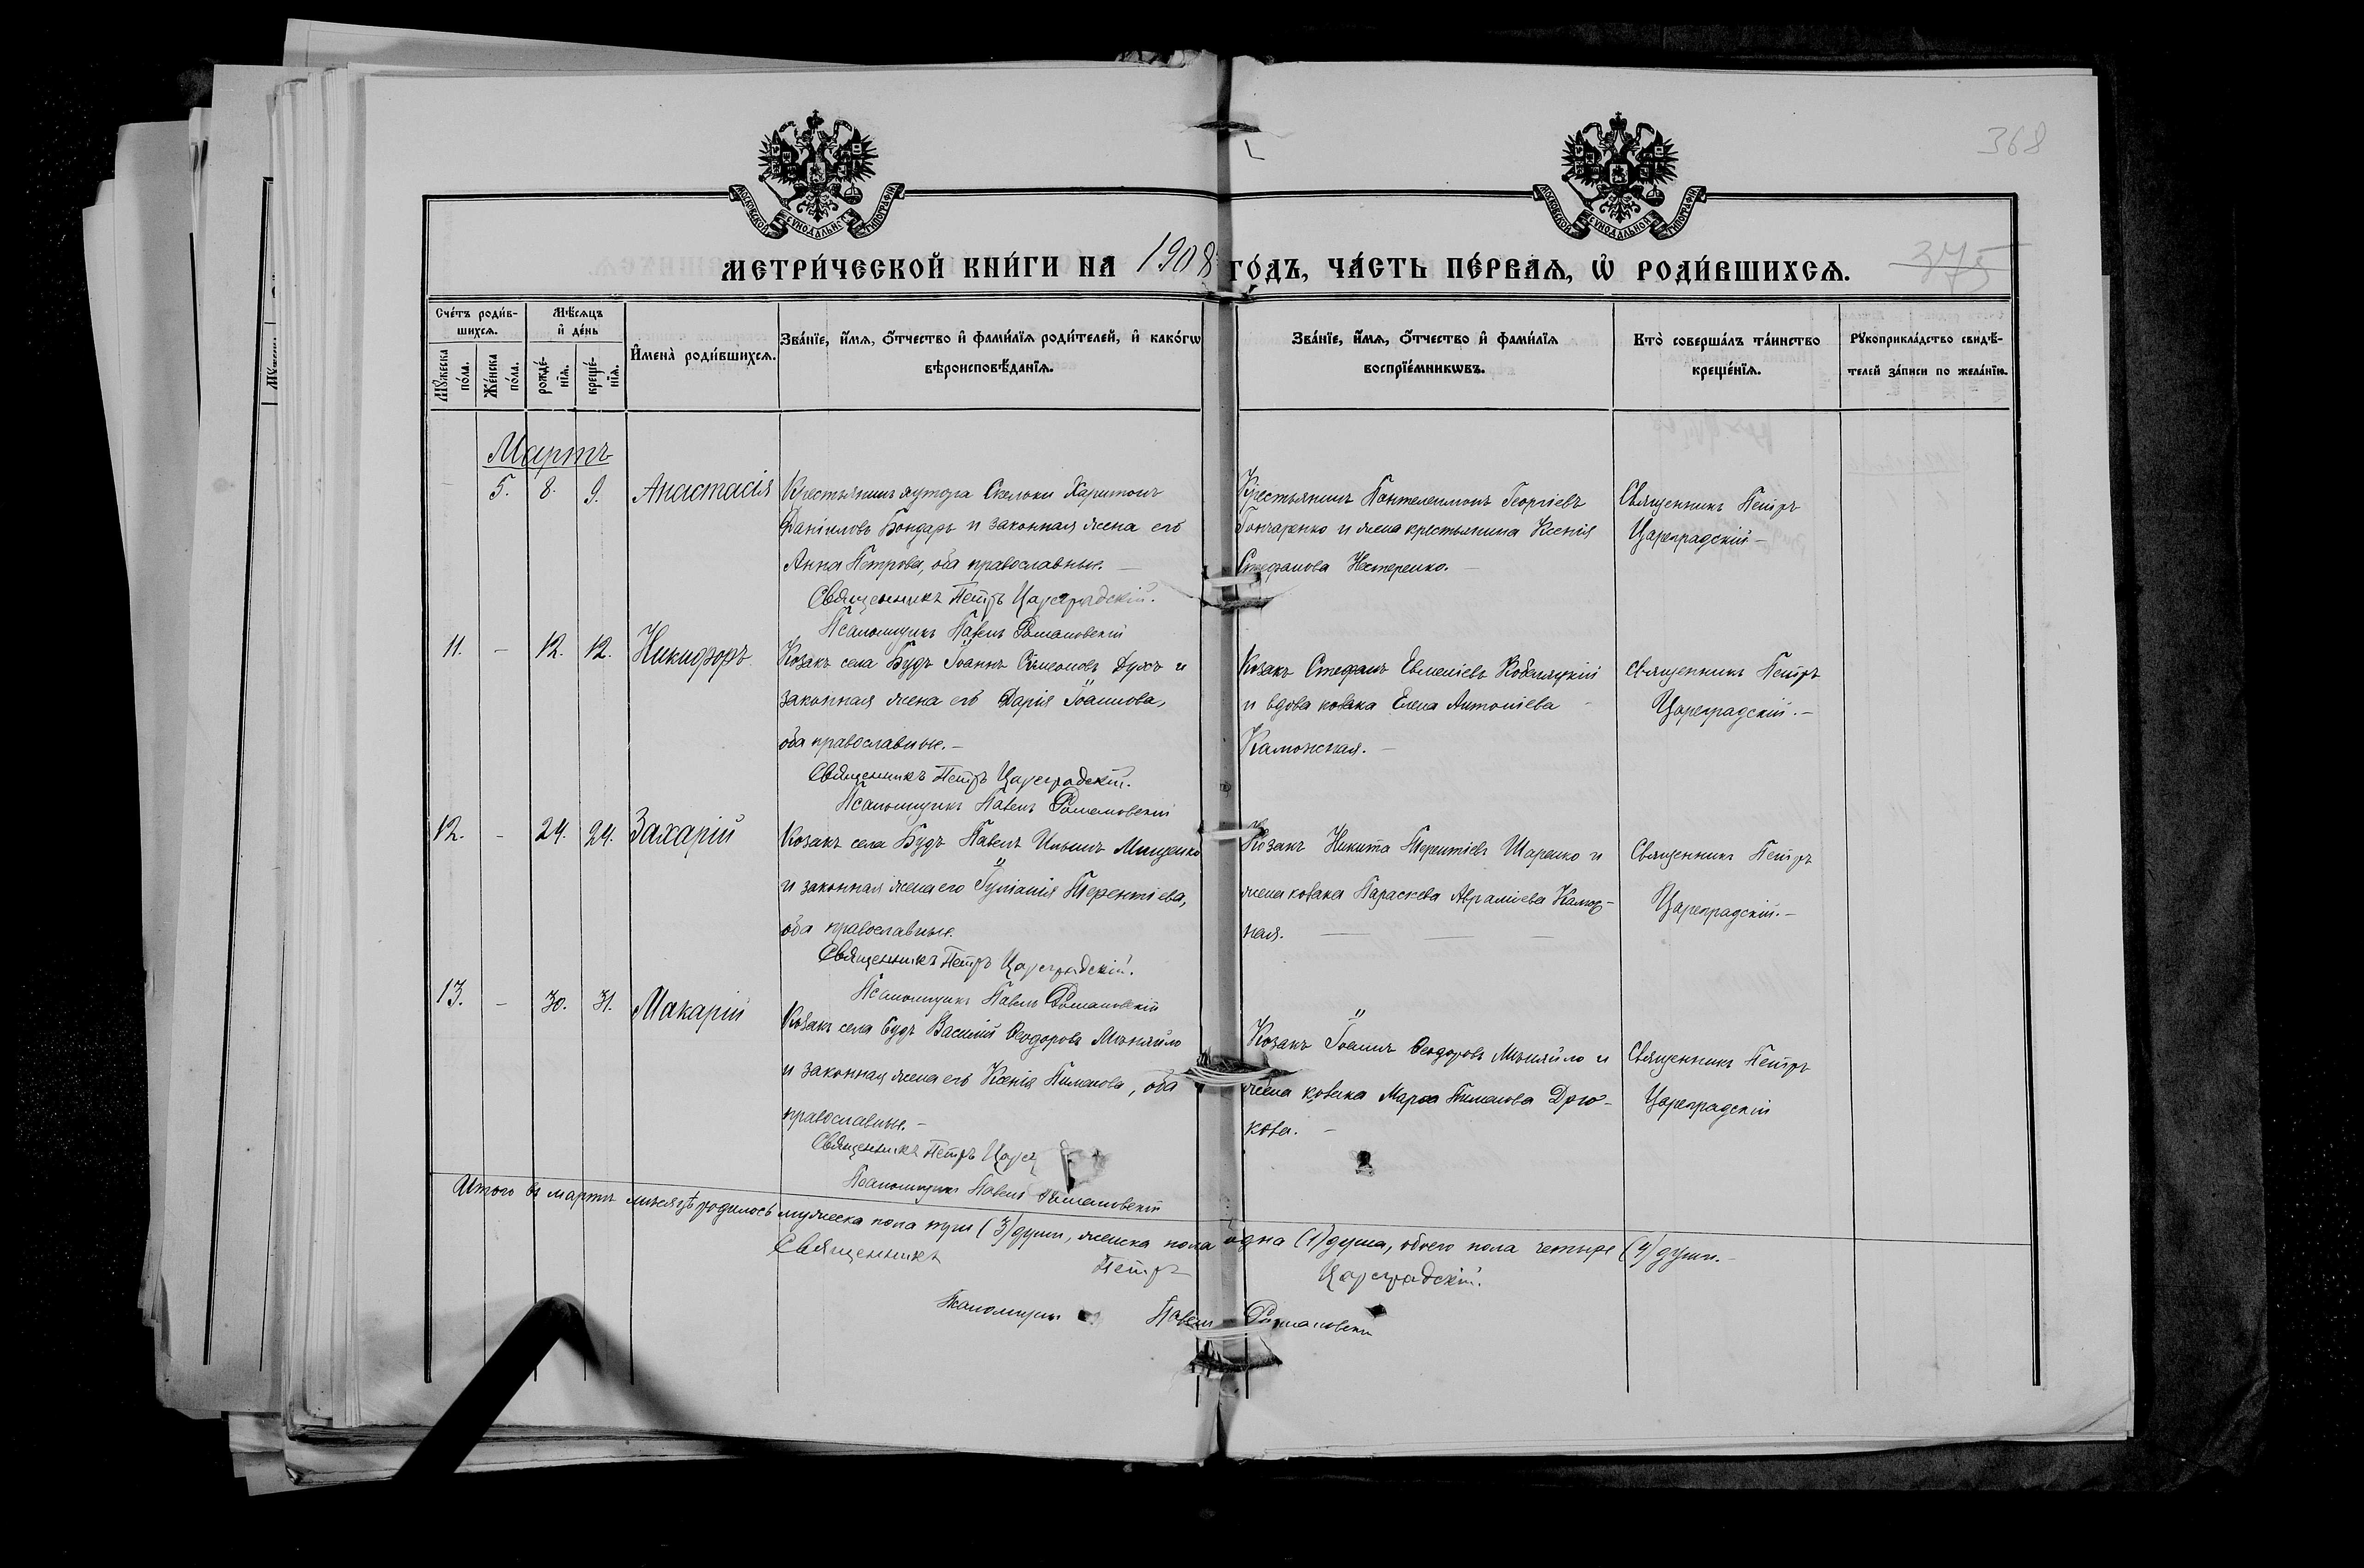 368
МОСКОВСКОЙ СѴНОДАЛЬНОЙ ТИПОГРАФІИ
МОСКОВСКОЙ СѴНОДАЛЬНОЙ ТИПОГРАФІИ
МЕТРИ́ЧЕСКОЙ КНИ́ГИ НА 1908 ГО́ДЪ, ЧА́СТЬ ПЕ́РВАѦ, Ѽ РОДИ́ВШИХСѦ.
375
Сче́тъ роди́в-
шихсѧ.
Мꙋ́жеска по́ла.
Же́нска по́ла.
Мѣ́сѧцъ
и҆ де́нь
рожде́-
нїѧ.
креще́-
нїѧ.
И҆мена̀ роди́вшихсѧ.
Зва́нїе, и҆́мѧ, ѻ҆́тчество и҆ фами́лїѧ роди́телей, и҆ како́гѡ
вѣроисповѣ́данїѧ.
Зва́нїе, и҆́мѧ, ѻ҆́тчество и҆ фами́лїѧ
воспрїе́мникѡвъ.
Кто̀ соверша́лъ та́инство
креще́нїѧ.
Рꙋкоприкла́дство свидѣ́-
телей за́писи по жела́нїю.
Мартъ
5. 8. 9. Анастасія
Крестьянинъ хутора Скельки Харитонъ
Даніиловъ Бондарь и законная жена его
Анна Петрова, оба православные. —
Священникъ Петръ Цареградскій.
Псаломщикъ Павелъ Романовскій
Крестьянинъ Пантелеимонъ Георгіевъ
Гончаренко и жена крестьянина Ксенія
Стефанова Нестеренко. —
Священникъ Петръ
Цареградскій —
11. — 12. 12. Никифоръ
Козакъ села Будъ Іоаннъ Симеоновъ Духъ и
законная жена его Дарія Іоаннова,
оба православные. —
Священникъ Петръ Цареградскій.
Псаломщикъ Павелъ Романовскій
Козакъ Стефанъ Евменіевъ Кобеляцкій
и вдова козака Елена Антоніева —
—
Священникъ Петръ
Цареградскій. —
12. — 24. 24. Захарій
Козакъ села Будъ Павелъ Ильинъ Мищенко
и законная жена его Іуліанія Терентіева,
оба православные.
Священникъ Петръ Цареградскій.
Псаломщикъ Павелъ Романовскій
Козакъ Никита Терентіевъ Шаренко и
жена козака Параскева Авраміева
ная. — — —
Священникъ Петръ
Цареградскій. —
13. — 30. 31. Макарій
Козакъ села Будъ Василій Ѳеодоровъ Мѣняйло
и законная жена его Ксенія Пиманова, оба
православные. —
Священникъ Петръ Царег
Псаломщикъ Павелъ Романовскій
Козакъ Іоаннъ Ѳеодоровъ Мѣняйло и
жена козака Марѳа Пиманова Дрю-
кова. —
Священникъ Петръ
Цареградскій
Итого въ мартѣ мѣсяцѣ родилось мужеска пола три (3) души, женска пола одна (1) душа, обоего пола четыре (4) души. —
Священникъ Петръ Цареградскій.
Псаломщикъ Павелъ Романовскій